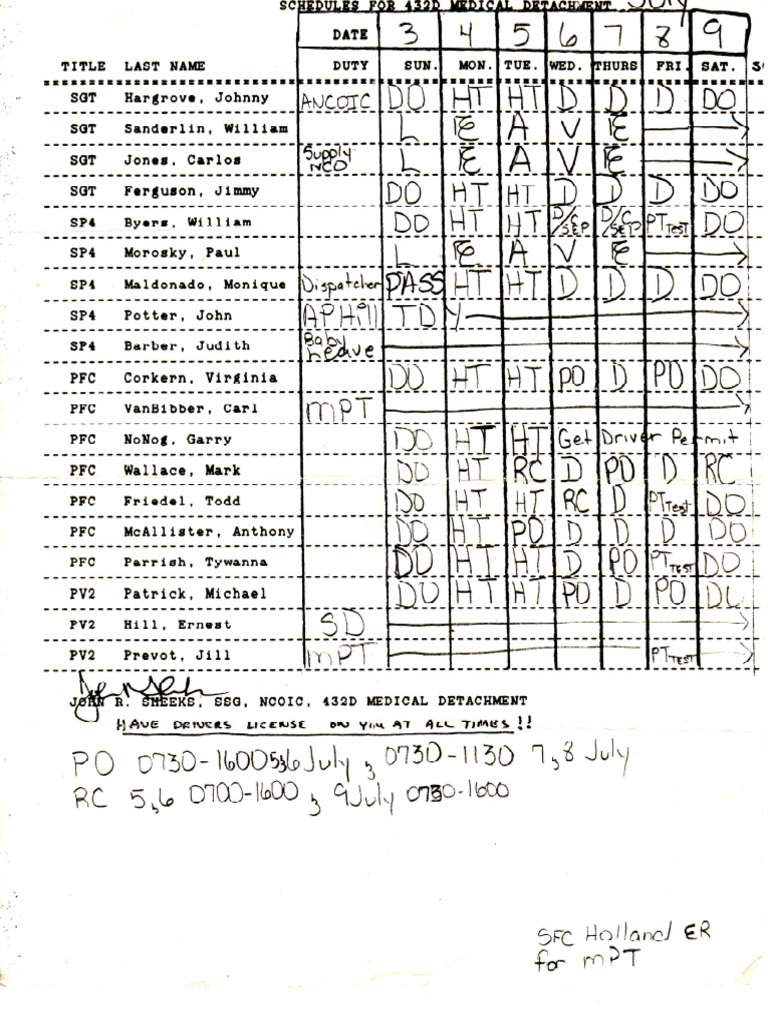 SCHEDULES FOR 432D MEDICAL DETACHMENT July
DATE 3 4 5 6 7 8 9
TITLE LAST NAME DUTY SUN. MON. TUE. WED. THURS FRI. SAT. S
SGT Hargrove, Johnny ANCOIC DO HT HT D D D DO
SGT Sanderlin, William L E A V E
SGT Jones, Carlos Supply NCO L E A V E
SGT Ferguson, Jimmy DO HT HT D D D DO
SP4 Byers, William DO HT HT D/C S&P D/C S&P PT TEST DO
SP4 Morosky, Paul L E A V E
SP4 Maldonado, Monique Dispatcher PASS HT HT D D D DO
SP4 Potter, John AP Hill TDY
SP4 Barber, Judith Baby Leave
PFC Corkern, Virginia DO HT HT PO D PO DO
PFC VanBibber, Carl MPT
PFC NoNog, Garry DO HT HT Get Driver Permit
PFC Wallace, Mark DO HT RC D PO D RC
PFC Friedel, Todd DO HT HT RC D PT Test DO
PFC McAllister, Anthony DO HT PO D D D DO
PFC Parrish, Tywanna DO HT HT D PO PT TEST DO
PV2 Patrick, Michael DO HT HT PO D PO DO
PV2 Hill, Ernest SD
PV2 Prevot, Jill MPT PT TEST
JOHN R. SHEEKS, SSG, NCOIC, 432D MEDICAL DETACHMENT
HAVE DRIVERS LICENSE ON YOU AT ALL TIMES!!
PO 0730-1600 5,6 July, 0730-1130 7,8 July
RC 5,6 0700-1600, 9 July 0730-1600
SFC Holland ER
for MPT